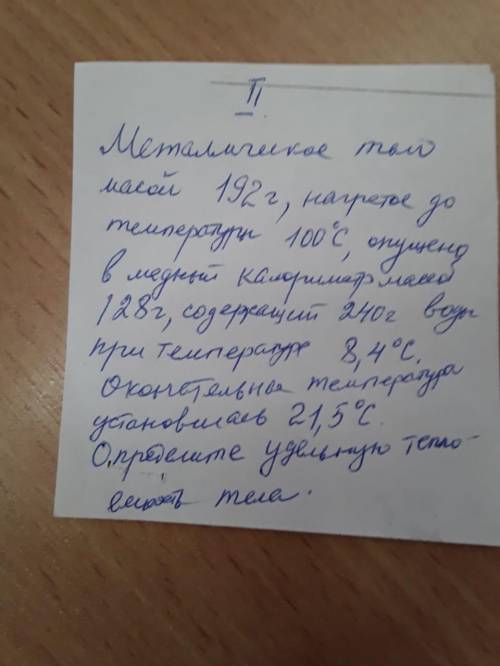 II
Металлическое тело
масой 192г, нагретое до
температуры 100°C, опущено
в медный калориметр масой
128г, содержащий 240г воды
при температуре 8,4°C.
Окончетельная температура
установилась 21,5°C.
Определите удельную тепло-
емкость тела.